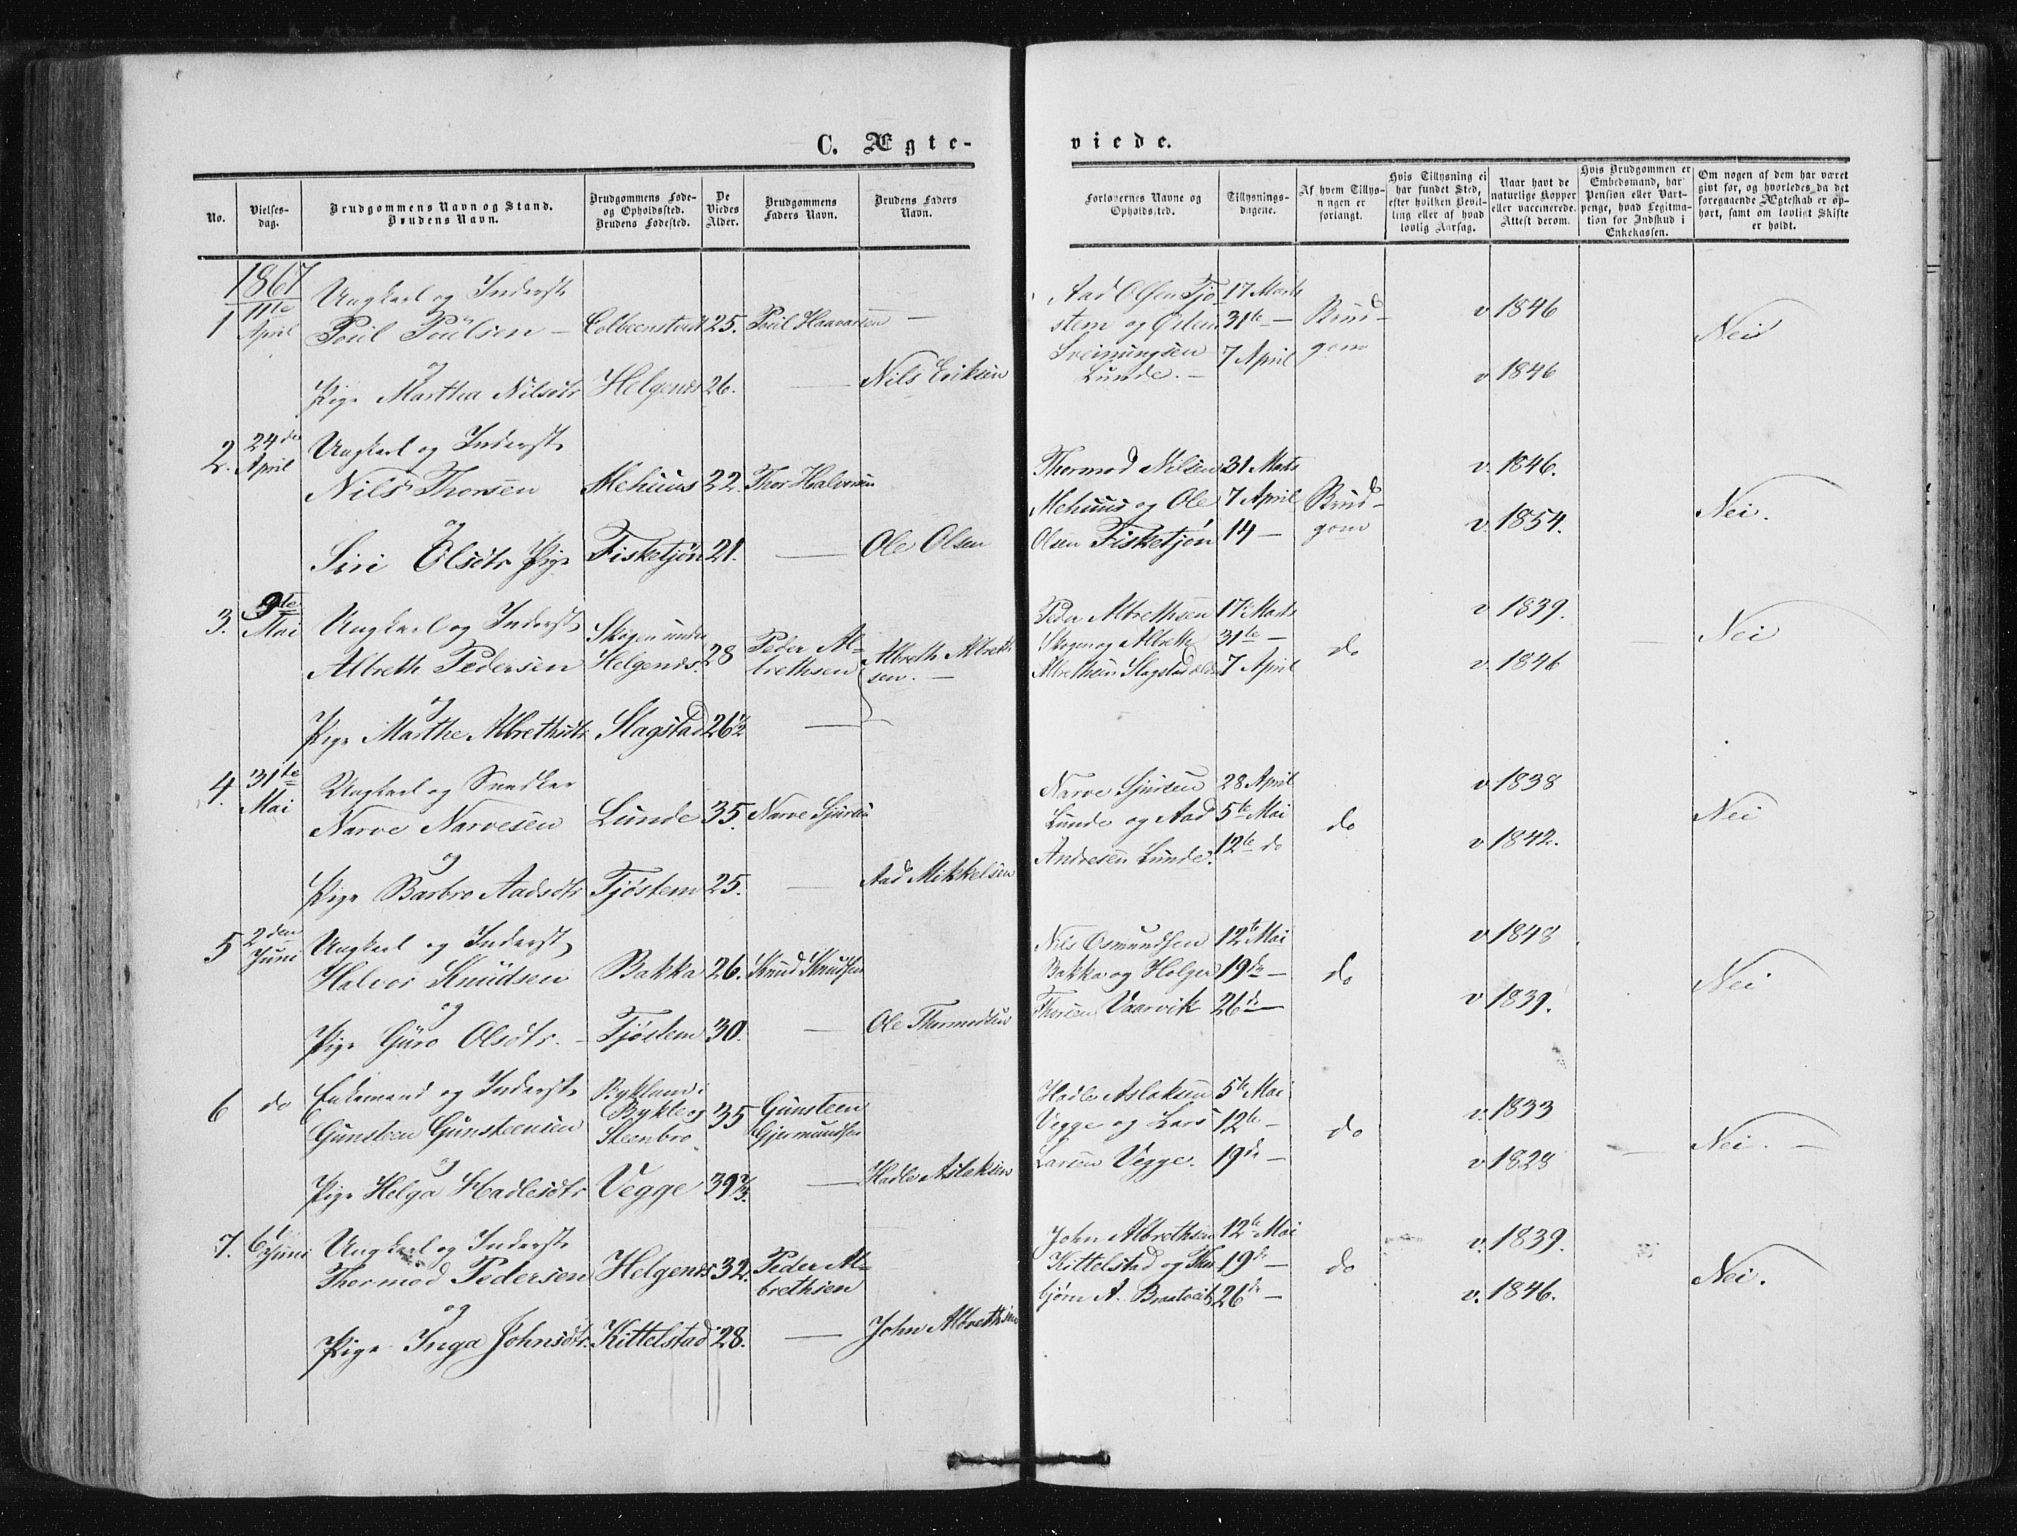 C. Ægte-
viede.
No.
Vielses-
dag.
Brudgommens Navn og Stand.
Brudens Navn.
Brudgommens Føde-
og Opholdssted.
Brudens Fødested.
De
Viedes
Alder.
Brudgommens
Faders Navn.
Brudens Faders
Navn.
Forlovernes Navne og
Opholdssted.
Tillysnings-
dagene.
Af hvem Tillys-
ningen er
forlangt.
Hvis Tillysning ei
har fundet Sted,
efter hvilken Bevil-
ling eller af hvad
lovlig Aarsag.
Naar havt de
naturlige Kopper
eller vaccinerede.
Attest derom.
Hvis Brudgommen er
Embedsmand, har
Pension eller Vart-
penge, hvad Legitima-
tion for Indskud i
Enkekassen.
Om nogen af dem har været
givt før, og hvorledes da det
foregaaende Ægteskab er op-
hørt, samt om lovligt Skifte
er holdt.
1867
1 11te April Ungkarl og Inderst
Poul Poulsen – 25. Poul Haavorsen –
og
Pige Martha Nilsdtr Helgenes 26. – Nils Eriksen
Aad Olsen Tjo- 17 Marts
stem og Osten 31te – Brud- v 1846 Nei
Sveinungsen 7 April gom
Lunde. – v 1846
2. 24de April Ungkarl og Inderst
Nils Thorsen Mehuus 22. Thor Halvorsen
og
Siri Olsdtr Pige Fisketjøn 21. – Ole Olsen
Thormod Nilsen 31 Marts v. 1846.
Mehuus og Ole 7 April Brud- Nei.
Olsen Fisketjøn 14 – gom v. 1854.
3. 9te Mai Ungkarl og Inderst Skogen under
Albreth Pedersen Helgenes. 28 Peder Al-
brethsen Albreth Albreth-
sen. –
og
Pige Marthe Albrethsdtr Slagstad 26½ –
Peder Albrethsen 17 Marts v 1839.
Skogen og Albreth 31te – do Nei
Albrethsen Slagstad 7 April v. 1846
4. 31te Mai Ungkarl og Snedker
Narve Narvesen Lunde 35. Narve Sjursen
og
Pige Barbro Aadsdtr Tjøstem 25. – Aad Mikkelsen
Narve Sjursen 28 April v 1838
Lunde og Aad 5te Mai do Nei
Andresen Lunde. 12te do v 1842.
5 2den Juni Ungkarl og Inderst
Halvor Knudsen Bakka 26. Knud Knudsen
og
Pige Guro Olsdtr. – Tjøstem 30. – Ole Thormodsen
Nils Osmundsen 12te Mai v 1848
Bakka og Holger 19de – do Nei
Thorsen Vaarvik 26de – v 1839.
6 do Enkemand og Inderst Bykland i
Gunsteen Gunsteensen Bykle og
Steenbro. 35 Gunsteen
Gjermundsen
og
Pige Helga Hadlesdtr Vegge 39 – Hadle Aslaksen
Hadle Aslaksen 5te Mai v. 1833
Vegge og Lars 12te – do Nei. –
Larsen Vegge. 19de – v 1828
7. 6 Juni Ungkarl og Inderst
Thormod Pedersen Helgenes 32. Peder Al-
brethsen
og
Pige Inga Johnsdtr. Kittelstad 28. – John Albrethsen
John Albrethsen 12te Mai v. 1839.
Kittelstad og Thor- 19de – do Nei.
bjørn A. 26de – v. 1846.